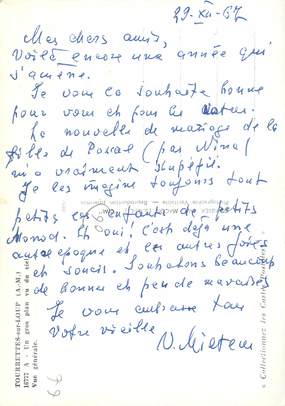 29-XII-67
Mes chers amis,
Voilà encore une année qui
s'amène.
Je vous la souhaite bonne
pour vous et pour les
La nouvelle de mariage de la
fille de Pascal (pas Nina)
m'a vraiment stupéfié.
Je les imagine toujours tout
petits ces enfants de petits
Monod. Eh oui! c'est déjà une
autre époque et les autres joies
et soucis. Souhaitons beaucoup
de bonnes et peu de mauvaises
Je vous embrasse tous
Votre vieille
TOURRETTES-sur-LOUP (A.-M.)
16777 A - Un gros plan vu du ciel
Vue générale.
« Collectionnez les Cartes